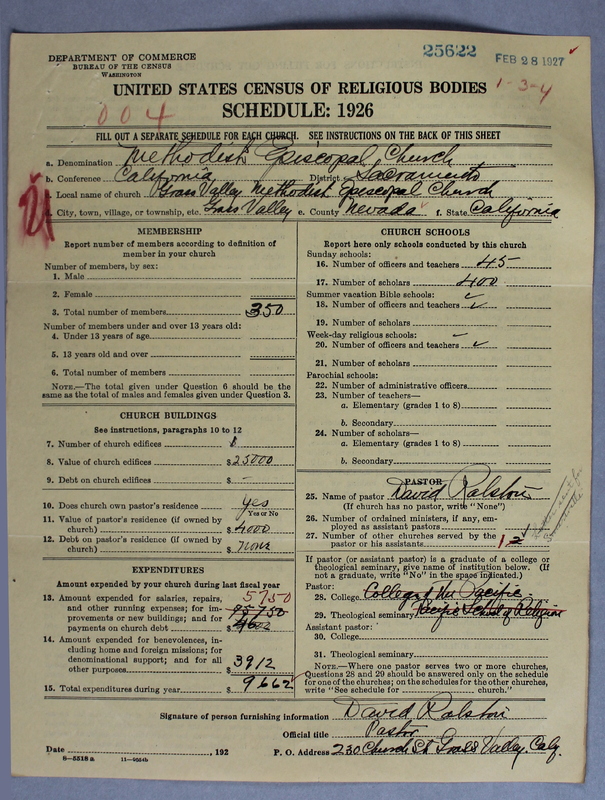 DEPARTMENT OF COMMERCE
BUREAU OF THE CENSUS
WASHINGTON
25622
FEB 28 1927
UNITED STATES CENSUS OF RELIGIOUS BODIES
1-3-4
SCHEDULE: 1926
004
FILL OUT A SEPARATE SCHEDULE FOR EACH CHURCH. SEE INSTRUCTIONS ON THE BACK OF THIS SHEET
a. Denomination Methodist Episcopal Church
b. Conference California District Sacramento
c. Local name of church Grass Valley Methodist Episcopal Church
d. City, town, village, or township, etc. Grass Valley e. County Nevada f. State California
MEMBERSHIP
Report number of members according to definition of
member in your church
Number of members, by sex:
1. Male
2. Female
3. Total number of members 350
Number of members under and over 13 years old:
4. Under 13 years of age
5. 13 years old and over
6. Total number of members
NOTE.—The total given under Question 6 should be
same as the total of males and females given under Question 3.
CHURCH BUILDINGS
See instructions, paragraphs 10 to 12
7. Number of church edifices 1
8. Value of church edifices $ 25000
9. Debt on church edifices $ -
10. Does church own pastor's residence yes
Yes or No
11. Value of pastor's residence (if owned by
church) $ 4000
12. Debt on pastor's residence (if owned by
church) $ none
EXPENDITURES
Amount expended by your church during last fiscal year
13. Amount expended for salaries, repairs, 5750
and other running expenses; for im-
provements or new buildings; and for
payments on church debt $
14. Amount expended for benevolences, in-
cluding home and foreign missions; for
denominational support; and for all
other purposes $ 3912
15. Total expenditures during year $ 9662
CHURCH SCHOOLS
Report here only schools conducted by this church
Sunday schools:
16. Number of officers and teachers 45
17. Number of scholars 400
Summer vacation Bible schools: ✓
18. Number of officers and teachers ✓
19. Number of scholars
Week-day religious schools: -
20. Number of officers and teachers ✓
21. Number of scholars
Parochial schools:
22. Number of administrative officers
23. Number of teachers—
a. Elementary (grades 1 to 8)
b. Secondary
24. Number of scholars—
a. Elementary (grades 1 to 8)
b. Secondary
PASTOR
25. Name of pastor David Ralston
(If church has no pastor, write "None")
26. Number of ordained ministers, if any, em-
ployed as assistant pastors
27. Number of other churches served by the
pastor or his assistants 1 2
If pastor (or assistant pastor) is a graduate of a college or
theological seminary, give name of institution below. (If
not a graduate, write "No" in the space indicated.)
Pastor:
28. College College of the Pacific
29. Theological seminary Pacific School of Religion
Assistant pastor:
30. College
31. Theological seminary
NOTE.—Where one pastor serves two or more churches,
Questions 28 and 29 should be answered only on the schedule
for one of the churches; on the schedules for the other churches,
write "See schedule for church."
Signature of person furnishing information David Ralston
Official title Pastor
Date , 192 P. O. Address 230 Church St Grass Valley. Calif.
8-5518 a 11-9054b